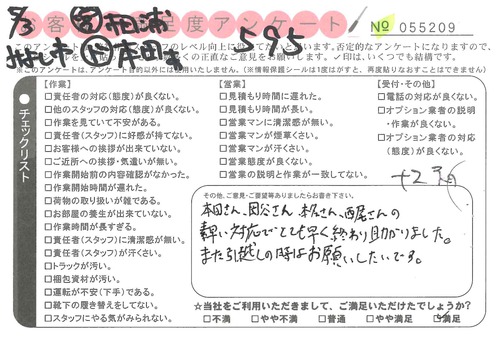 お客様満足度アンケート
№ 055209
8/3 営 相浦
みよし市 作 本田様 595
※このアンケートは、アンケート目的以外には使用いたしません。(※情報保護シールは1度はがすと、再度貼りなおすことはできません)
チェックリスト
【作業】
□責任者の対応(態度)が良くない。
□他のスタッフの対応(態度)が良くない。
□作業を見ていて不安がある。
□責任者(スタッフ)に好感が持てない。
□お客様への挨拶が出来ていない。
□ご近所への挨拶・気遣いが無い。
□作業開始前の内容確認がなかった。
□作業開始時間が遅れた。
□荷物の取り扱いが雑である。
□お部屋の養生が出来ていない。
□作業時間が長すぎる。
□責任者(スタッフ)に清潔感が無い。
□責任者(スタッフ)が汗くさい。
□トラックが汚い。
□梱包資材が汚い。
□運転が不安(下手)である。
□靴下の履き替えをしてない。
□スタッフにやる気がみられない。
【営業】
□見積もり時間に遅れた。
□見積もり時間が長い。
□営業マンに清潔感が無い。
□営業マンが煙草くさい。
□営業マンが汗くさい。
□営業態度が良くない。
□営業の説明と作業が一致してない。
【受付・その他】
□電話の対応が良くない。
□オプション業者の説明・作業が良くない。
□オプション業者の対応(態度)が良くない。
その他、ご意見・ご要望等ありましたらお書き下さい。
本田さん、図谷さん 本下さん、西尾さんの
素早い対応でとても早く終わり助かりました。
また引越しの時はお願いしたいです。
☆当社をご利用いただきまして、ご満足いただけたでしょうか?
□不満 □やや不満 □普通 □やや満足 ☑満足